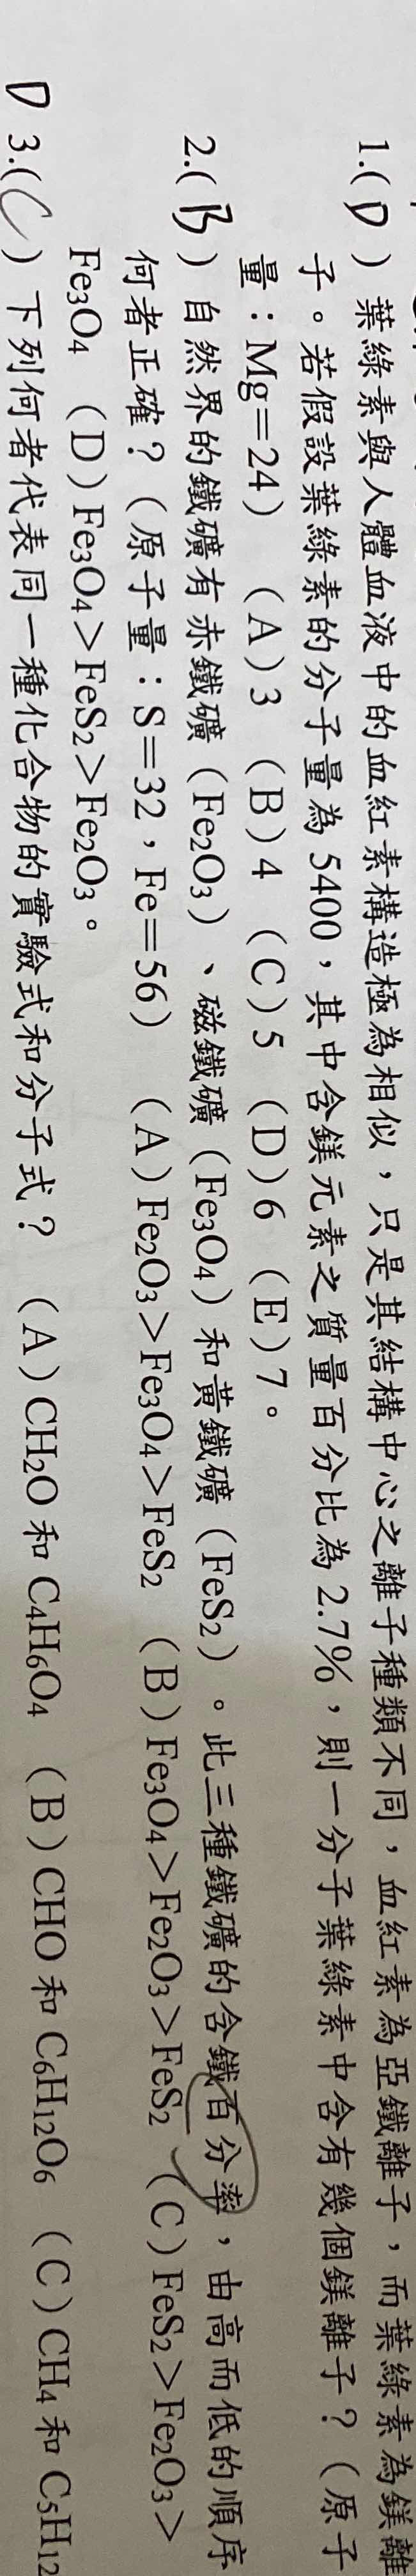 1.( D ) 葉綠素與人體血液中的血紅素構造極為相似，只是其結構中心之離子種類不同，血紅素為亞鐵離子，而葉綠素為鎂離
子。若假設葉綠素的分子量為 5400，其中含鎂元素之質量百分比為 2.7%，則一分子葉綠素中含有幾個鎂離子？（原子
量：Mg＝24） （A）3 （B）4 （C）5 （D）6 （E）7。
2.( B ) 自然界的鐵礦有赤鐵礦（Fe₂O₃）、磁鐵礦（Fe₃O₄）和黃鐵礦（FeS₂）。此三種鐵礦的含鐵百分率，由高而低的順序
何者正確？（原子量：S＝32，Fe＝56） （A）Fe₂O₃＞Fe₃O₄＞FeS₂ （B）Fe₃O₄＞Fe₂O₃＞FeS₂ （C）FeS₂＞Fe₂O₃＞
Fe₃O₄ （D）Fe₃O₄＞FeS₂＞Fe₂O₃。
D 3.( C ) 下列何者代表同一種化合物的實驗式和分子式？ （A）CH₂O 和 C₄H₆O₄ （B）CHO 和 C₆H₁₂O₆ （C）CH₄ 和 C₅H₁₂